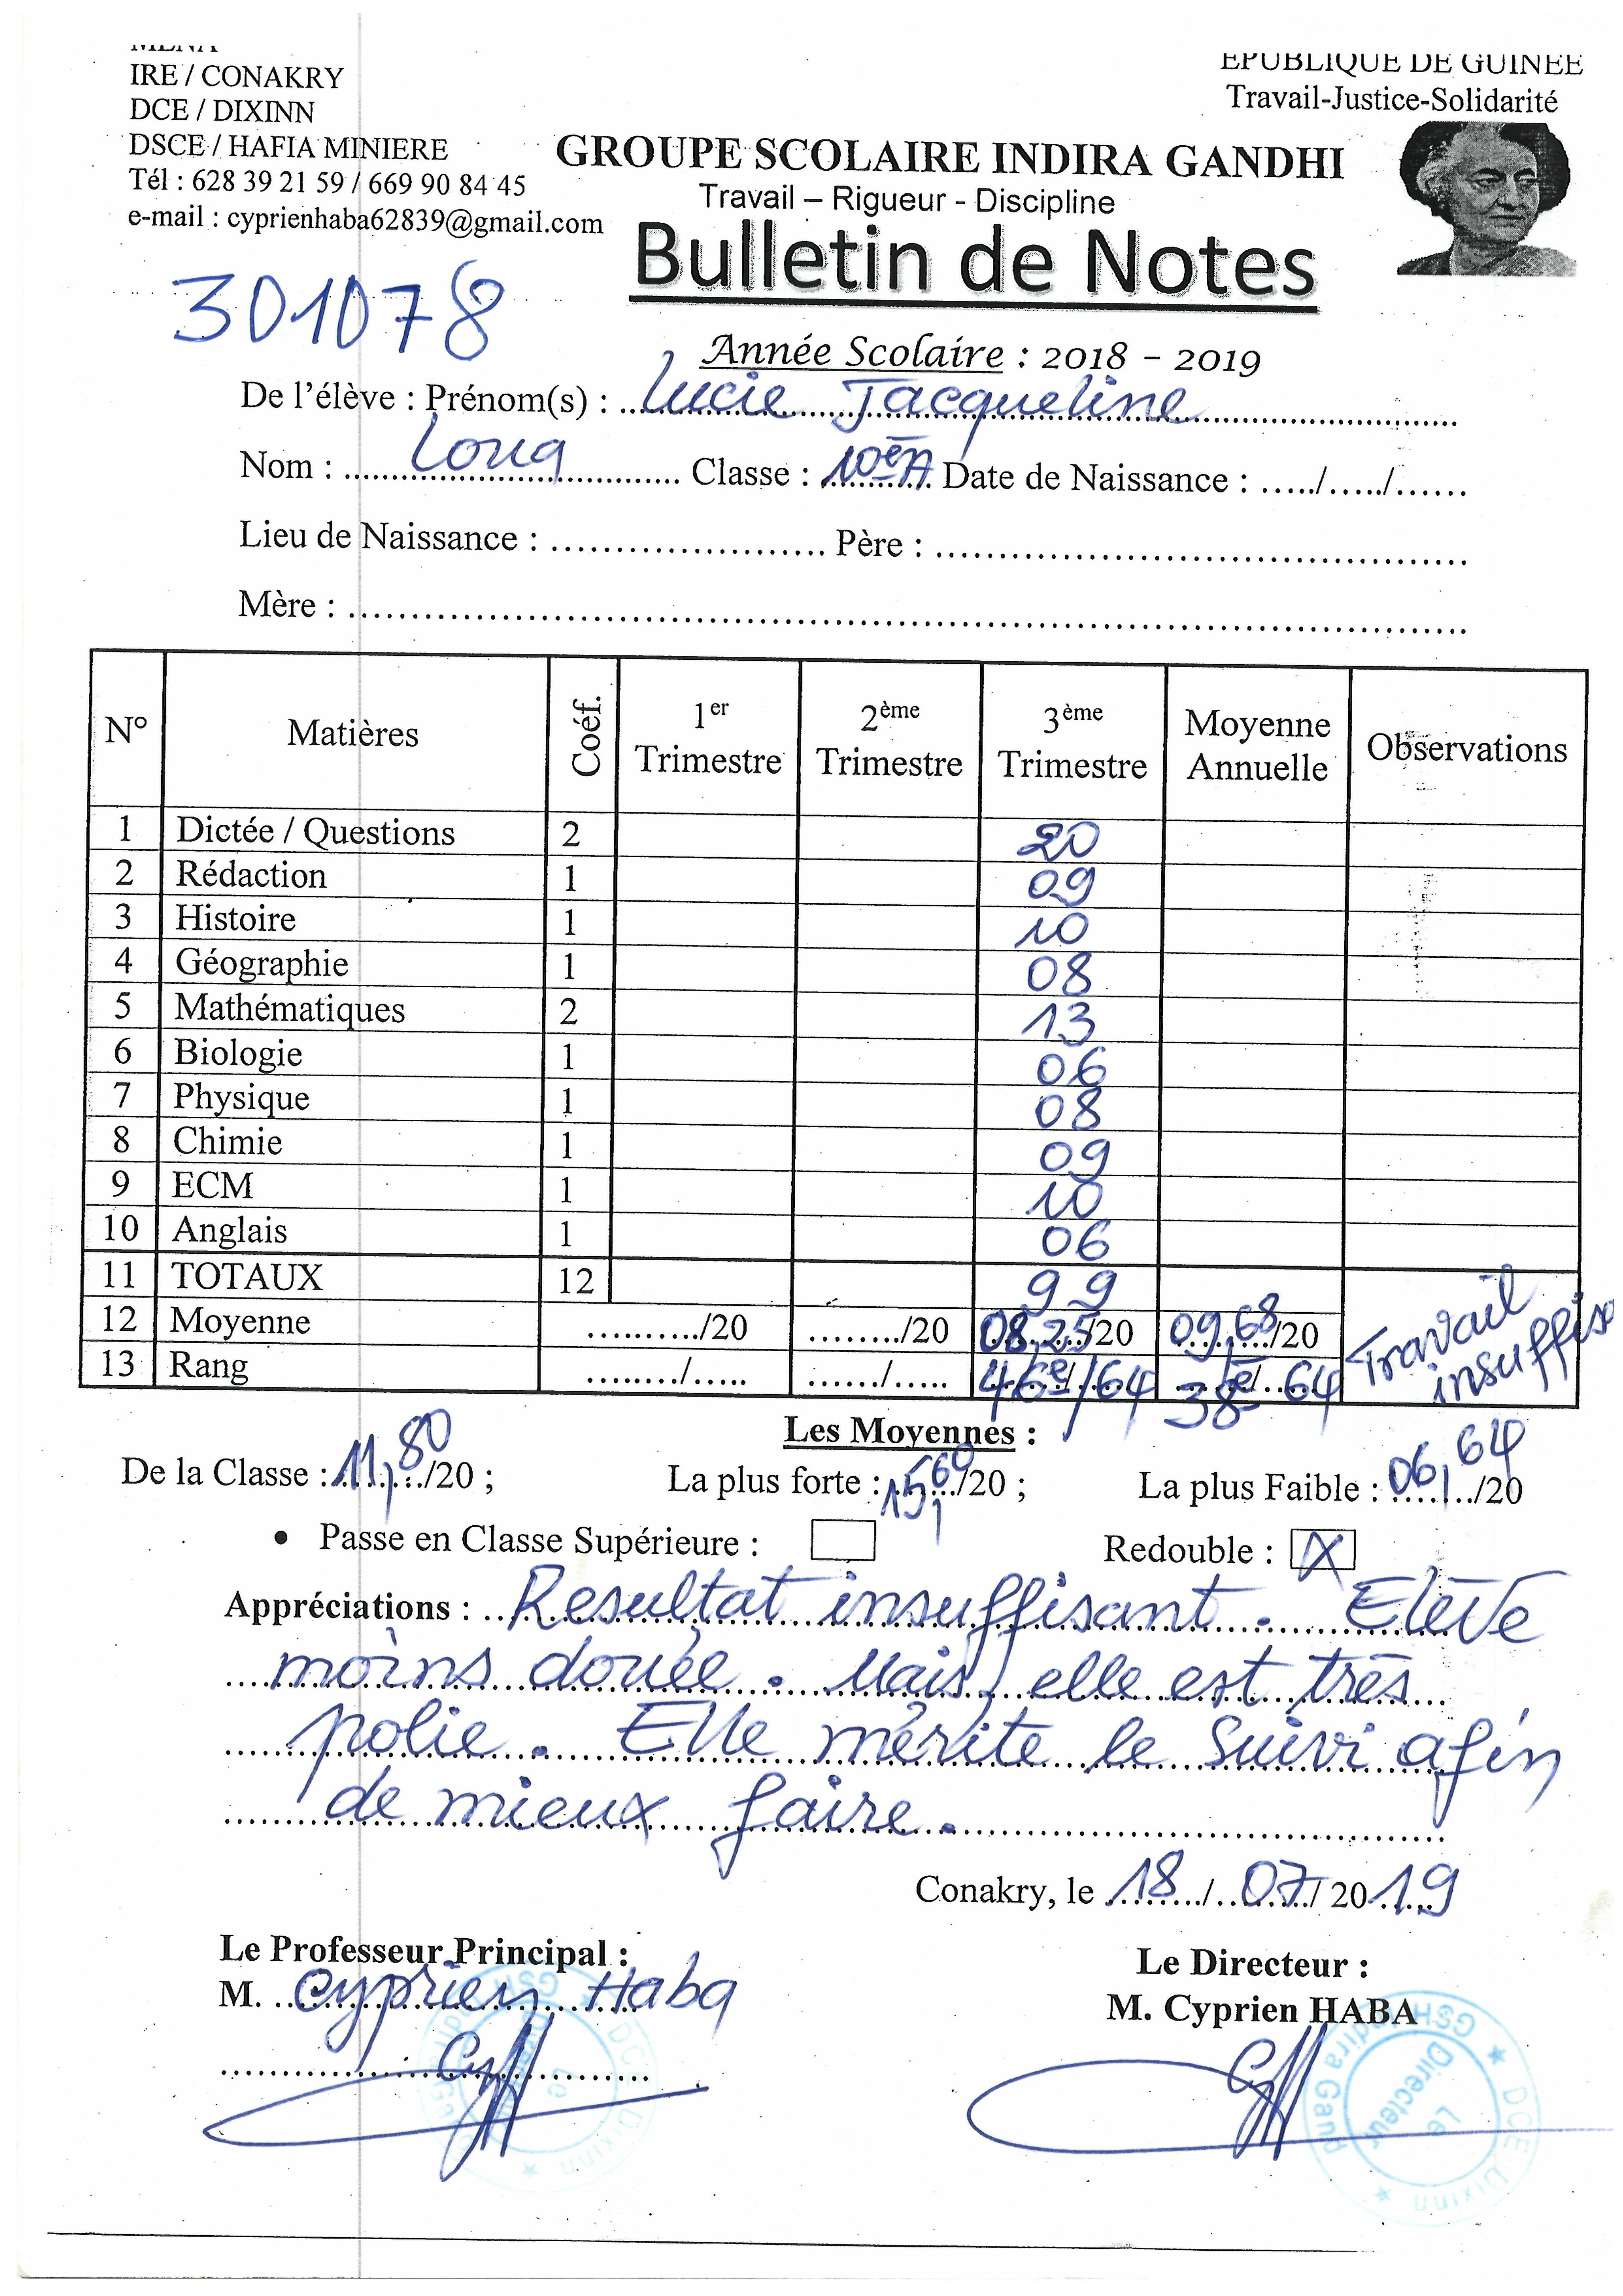 MENA
IRE / CONAKRY
DCE / DIXINN
DSCE / HAFIA MINIERE
Tél : 628 39 21 59 / 669 90 84 45
e-mail : cyprienhaba62839@gmail.com
EPUBLIQUE DE GUINEE
Travail-Justice-Solidarité
GROUPE SCOLAIRE INDIRA GANDHI
Travail – Rigueur - Discipline
Bulletin de Notes
301078
Année Scolaire : 2018 - 2019
De l'élève : Prénom(s) : Lucie Jacqueline
Nom : Loua Classe : 10è A Date de Naissance : ...../...../......
Lieu de Naissance : ........................ Père : ........................
Mère : ........................
N° Matières Coéf. 1er Trimestre 2ème Trimestre 3ème Trimestre Moyenne Annuelle Observations
1 Dictée / Questions 2 20
2 Rédaction 1 09
3 Histoire 1 10
4 Géographie 1 08
5 Mathématiques 2 13
6 Biologie 1 06
7 Physique 1 08
8 Chimie 1 09
9 ECM 1 10
10 Anglais 1 06
11 TOTAUX 12 99
12 Moyenne ........../20 ......../20 08,25/20 09,68/20 Travail
13 Rang ......../..... ....../..... 46è/64 38è/64
Les Moyennes :
De la Classe : 11,80/20 ; La plus forte : 15,60/20 ; La plus Faible : 06,64/20
• Passe en Classe Supérieure : Redouble : X
Appréciations : Resultat insuffisant. Elève
moins douée. Mais, elle est très
polie. Elle mérite le suivi afin
de mieux faire.
Conakry, le 18/07/2019
Le Professeur Principal :
M. Cyprien Haba
Le Directeur :
M. Cyprien HABA
Le Directeur
DCE Dixinn